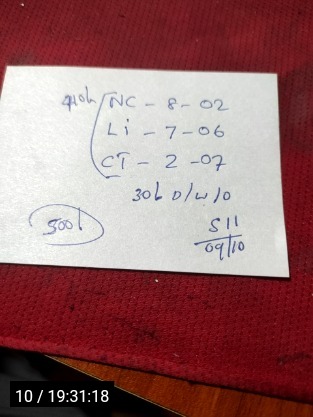 910L NC - 8 - 02
Li - 7 - 06
CT - 2 - 07
30L D/W/O
500L
S11
09/10
10 / 19:31:18